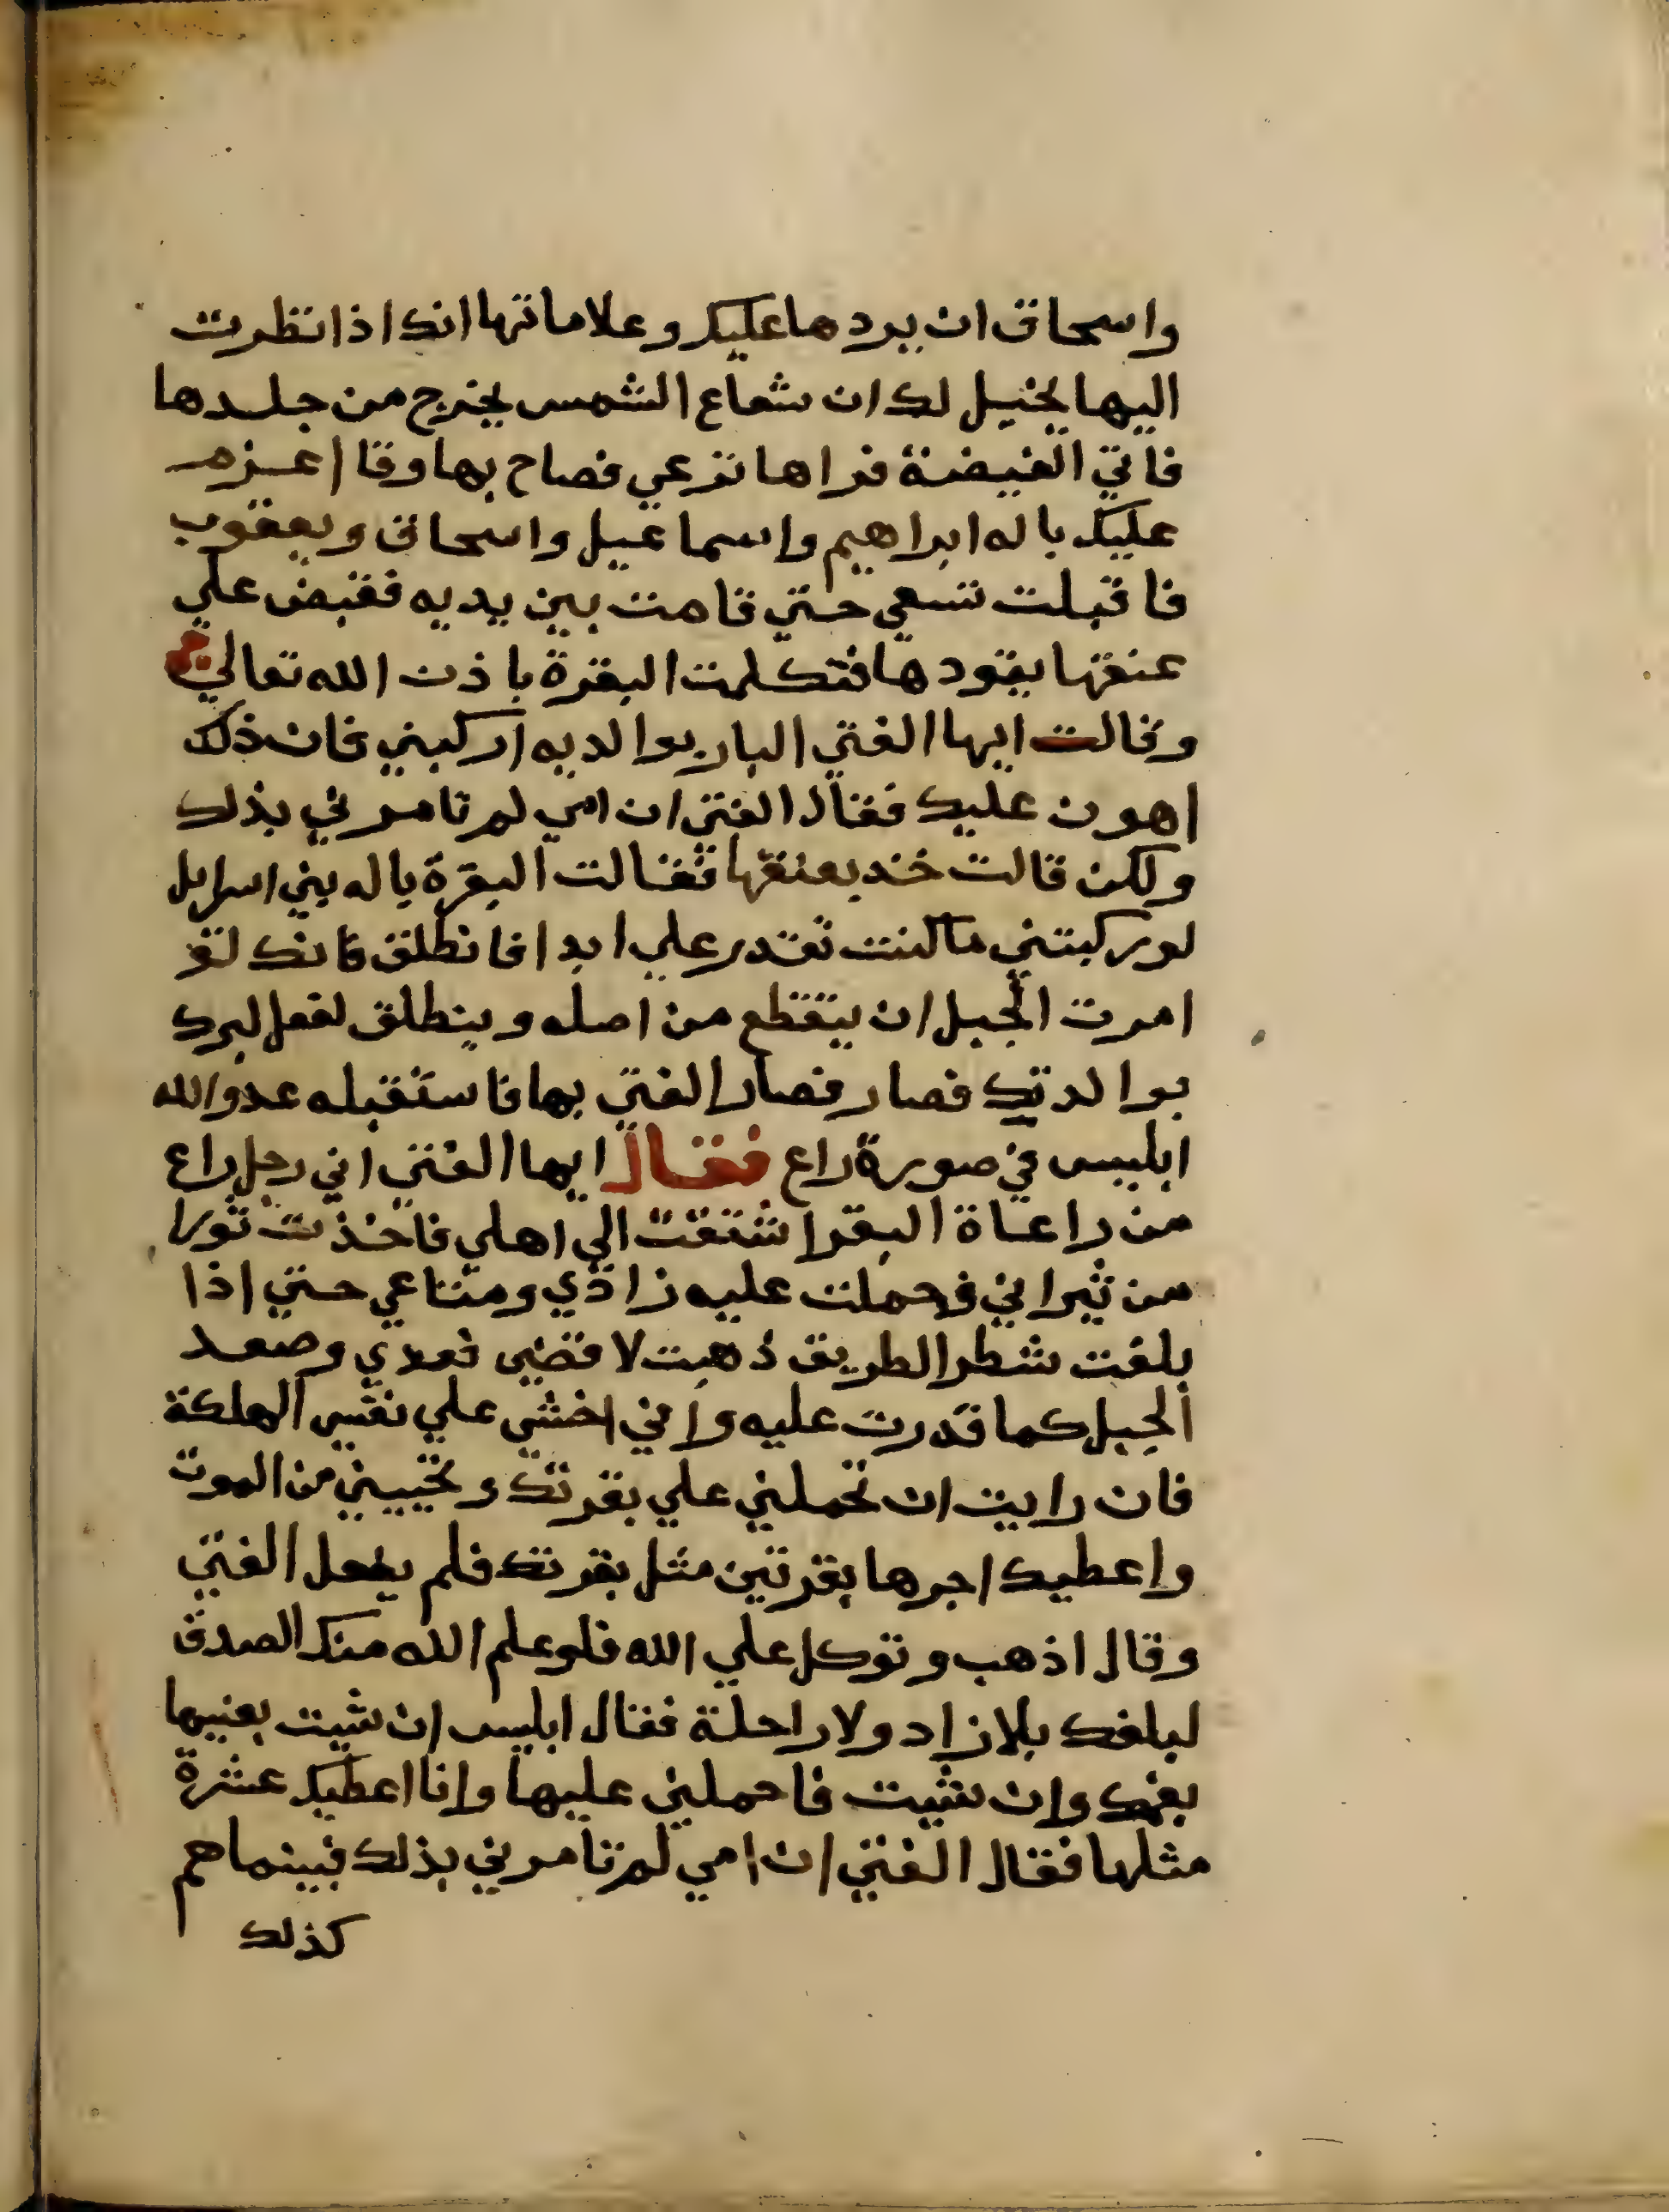 واسحاق ان يردها عليك وعلاماتها انك اذا نظرت
اليها يخيل لك ان شعاع الشمس يخرج من جلدها
فاتي الغيضة فراها ترعي فصاح بها وقا اعزم
عليك باله ابراهيم واسماعيل واسحاق ويعقوب
فاقبلت تسعي حتي قامت بين يديه فقبض علي
عنقها يقودها فتكلمت البقرة باذن الله تعالي
وقالت ايها الفتي البار بوالديه اركبني فان ذلك
اهون عليك فقال الفتي ان امي لم تامرني بذلك
ولكن قالت خذ بعنقها فقالت البقرة باله بني اسرايل
لوركبتني ما كنت تقدر علي ابدا فانطلق فانك لو
امرت الجبل ان ينقطع من اصله وينطلق لفعل لبرك
بوالدتك فصار فصار الفتي بها فاستقبله عدو الله
ابليس في صورة راع فقال ايها الفتي اني رجل راع
من راعاة البقر اشتقت الي اهلي فاخذت ثورا
من ثيراني فحملت عليه زادي ومتاعي حتي اذا
بلغت شطر الطريق ذهبت لاقضي فعدي وصعد
الجبل كما قدرت عليه واني اخشي علي نفسي الهلكة
فان رايت ان تحملني علي بقرتك وتحييني من الموت
واعطيك اجرها بقرتين مثل بقرتك فلم يفعل الفتي
وقال اذهب وتوكل علي الله فلو علم الله منك الصدق
لبلغك بلا زاد ولا راحلة فقال ابليس ان شيت بعنيها
بحكمك وان شيت فاحملني عليها وانا اعطيك عشرة
مثلها فقال الفتي ان امي لم تامرني بذلك فبينما هم
كذلك